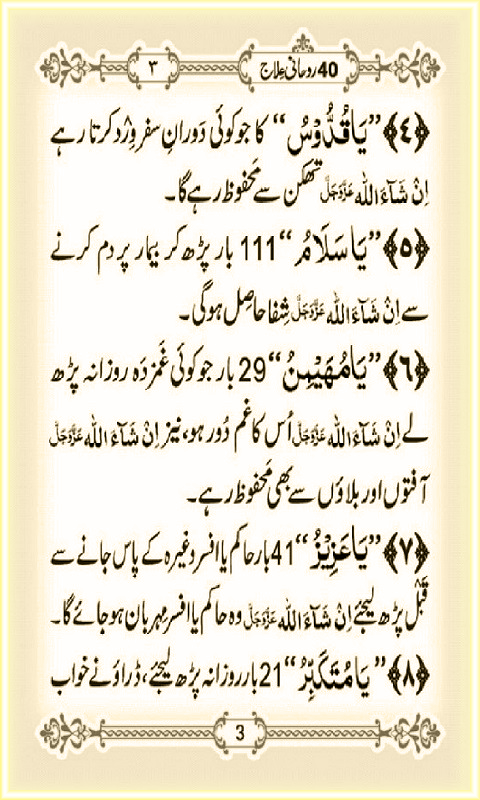 40 روحانی علاج
۳
﴿٤﴾ ”یَاقُدُّوْسُ“ کا جو کوئی دَورانِ سفر وِرْد کرتا رہے
اِنْ شَآءَ اللہ عَزَّوَجَلَّ تھکن سے مَحفوظ رہے گا۔
﴿٥﴾ ”یَاسَلَامُ“ 111 بار پڑھ کر بیمار پر دم کرنے
سے اِنْ شَآءَ اللہ عَزَّوَجَلَّ شِفا حاصِل ہوگی۔
﴿٦﴾ ”یَامُهَیْمِنُ“ 29 بار جو کوئی غَمزدہ روزانہ پڑھ
لے اِنْ شَآءَ اللہ عَزَّوَجَلَّ اُس کا غم دُور ہو، نیز اِنْ شَآءَ اللہ عَزَّوَجَلَّ
آفتوں اور بلاؤں سے بھی مَحفوظ رہے۔
﴿٧﴾ ”یَاعَزِیْزُ“ 41 بار حاکم یا افسر وغیرہ کے پاس جانے سے
قَبْل پڑھ لیجئے اِنْ شَآءَ اللہ عَزَّوَجَلَّ وہ حاکم یا افسر مہربان ہو جائے گا۔
﴿٨﴾ ”یَامُتَکَبِّرُ“ 21 بار روزانہ پڑھ لیجئے، ڈراؤنے خواب
3